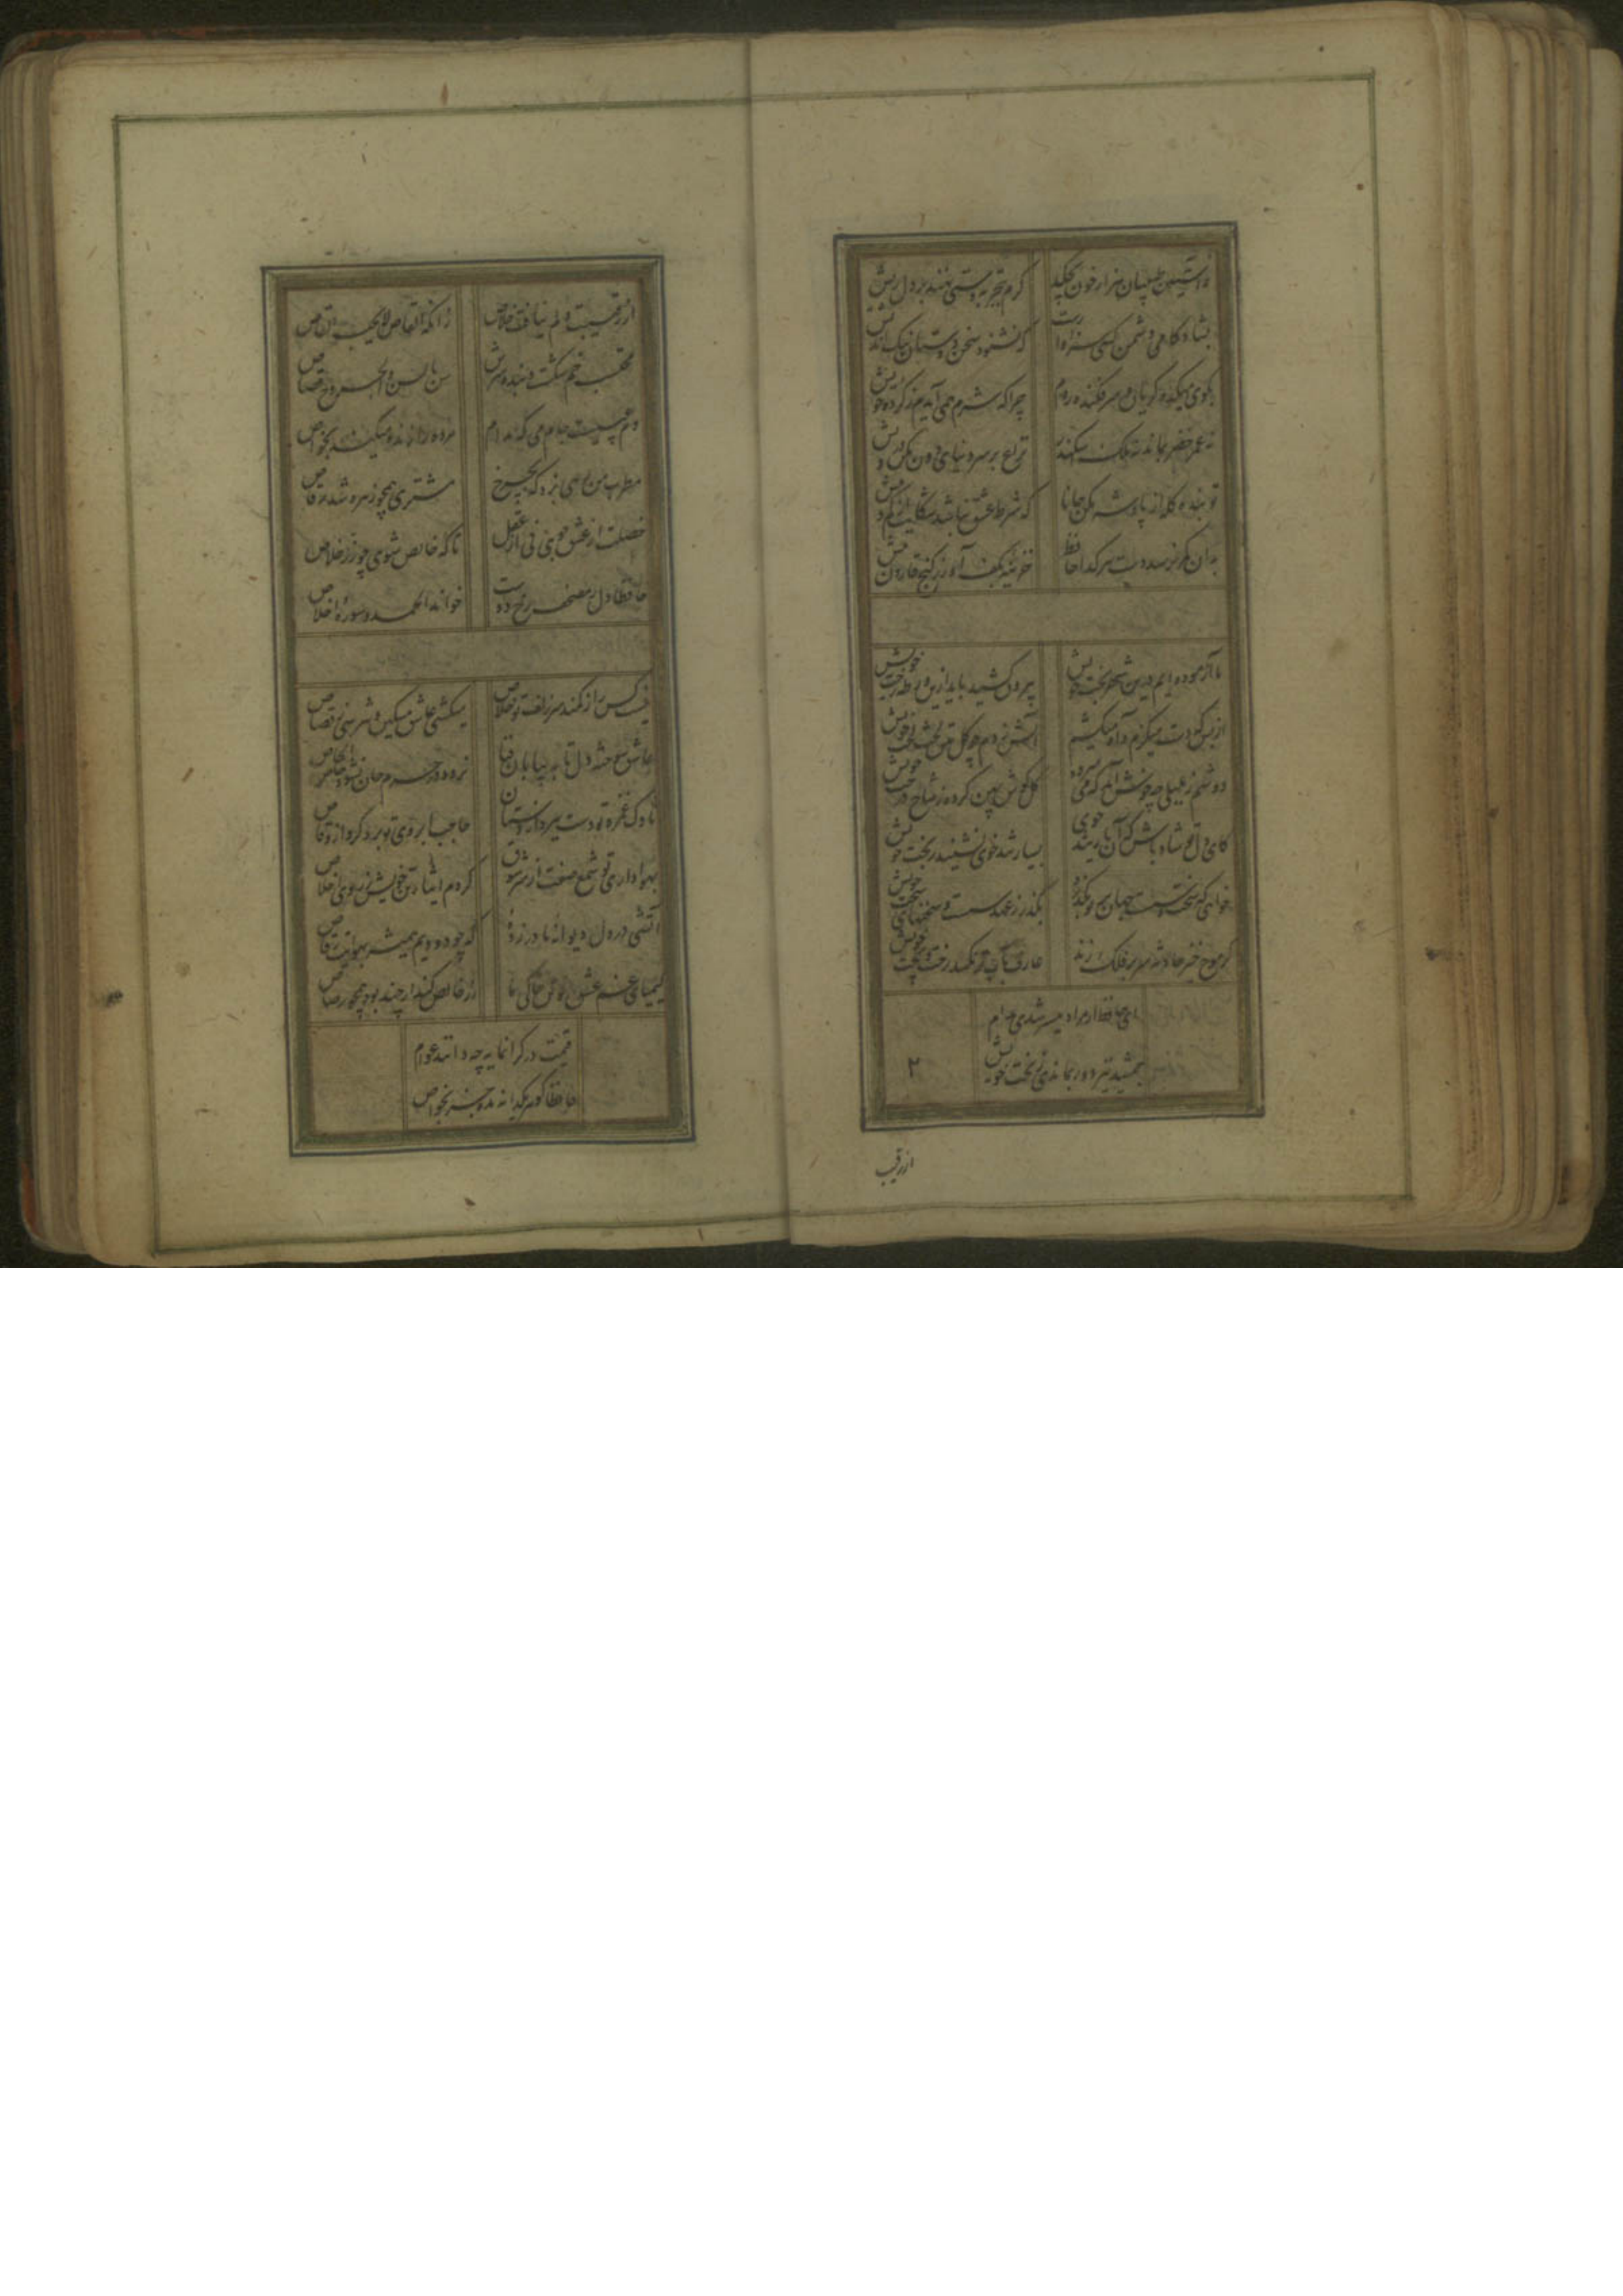 ز آستین طبیبان هزار خون بچکد گرم بتجربه دستی نهند بر دل ریش
بشادکامی دشمن کسی سزاوارست که نشنود سخن دوستان نیک اندیش
بکوی میکده گریان و سرفکنده روم چرا که شرم همی آیدم ز کرده خویش
نه عمر خضر بماند نه ملک اسکندر نزاع بر سر دنیای دون مکن درویش
تو بنده گله از پادشه مکن جانا که شرط عشق نباشد شکایت از کم و بیش
بدان کمر نرسد دست هر گدا حافظ خزینه بکف آور ز گنج قارون بیش
ما آزموده‌ایم درین شهر بخت خویش بیرون کشید باید ازین ورطه رخت خویش
از بس که دست میگزم و آه میکشم آتش زدم چو گل بتن لخت لخت خویش
دوشم ز بلبلی چه خوش آمد که می سرود گل گوش پهن کرده ز شاخ درخت خویش
کای دل تو شاد باش که آن یار تند خوی بسیار تند خوی نشیند ز بخت خویش
خواهی که سخت و سست جهان بر تو بگذرد بگذر ز عهد سست و سخنهای سخت خویش
گر موج خیز حادثه سر بر فلک زند عارف بآب تر نکند رخت و پخت خویش
ای حافظ ار مراد میسر شدی مدام
جمشید نیز دور نماندی ز تخت خویش
۲
از رقیب
از رقیبت دلم نیافت خلاص زانکه القاص لا یحب القاص
محتسب خم شکست و بنده سرش سن بالسن والجروح قصاص
مطرب من رهی بزد که بچرخ مشتری همچو زهره شد رقاص
خصلت از عشق جوی نی از عقل تا که خالص شوی چو زر خلاص
حافظ اول ز مصحف رخ دوست خواند الحمد و سوره اخلاص
نیست کس را ز کمند سر زلف تو خلاص میکشی عاشق مسکین و نترسی ز قصاص
عاشق سوخته دل تا به بیابان فنا نرود در حرم جان نشود خاص الخاص
ناوک غمزه تو دست ببرد از دستان حاجب ابروی تو برد گرو از وقاص
بهواداری تو شمع صفت از سر شوق کردم ایثار تن خویش ز روی اخلاص
آتشی در دل دیوانه ما در زده که چو دودیم همیشه بهوایت رقاص
کیمیای غم عشق تو تن خاکی ما زر خالص کند ار چند بود همچو رصاص
قیمت در گرانمایه چه دانند عوام
حافظا گوهر یکدانه مده جز بخواص